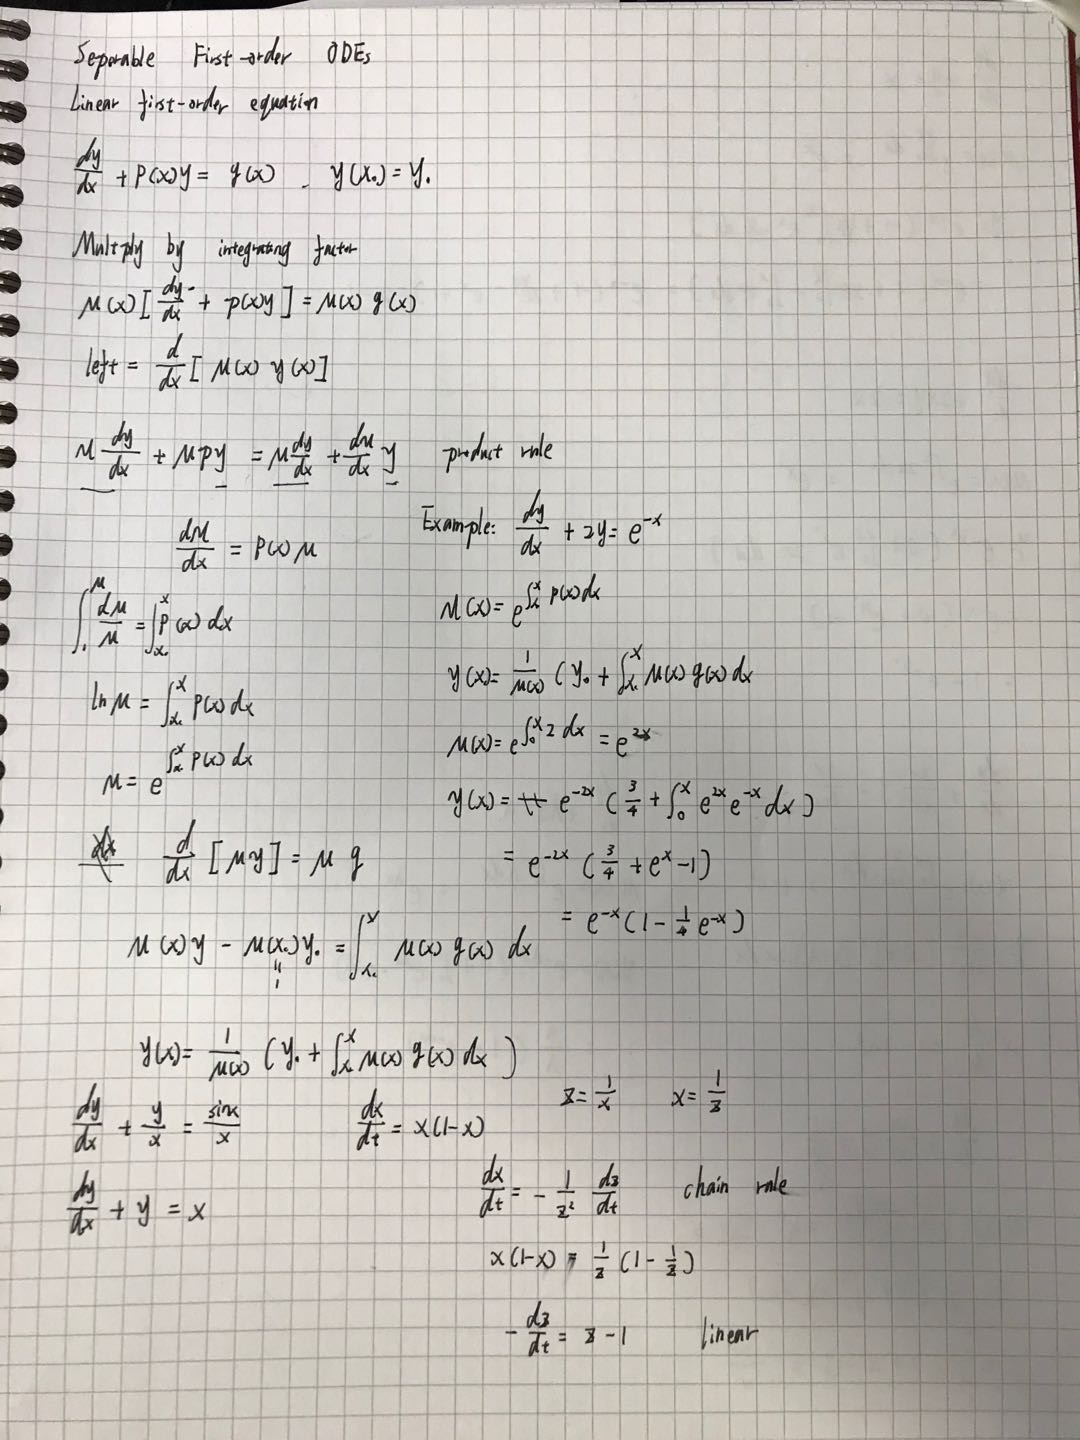 Separable First-order ODEs
Linear first-order equation
dy/dx + P(x)y = g(x) y(x₀) = y₀
Multply by integrating factor
μ(x)[dy/dx + p(x)y] = μ(x) g(x)
left = d/dx [μ(x) y(x)]
μ dy/dx + μpy = μ dy/dx + dμ/dx y product rule
dμ/dx = P(x)μ
∫₁^μ dμ/μ = ∫_{x₀}^x P(x) dx
ln μ = ∫_{x₀}^x P(x) dx
μ = e^{∫_{x₀}^x P(x) dx}
d/dx [μy] = μ g
μ(x)y - μ(x₀)y₀ = ∫_{x₀}^x μ(x) g(x) dx
"
1
y(x) = 1/μ(x) (y₀ + ∫_{x₀}^x μ(x) g(x) dx)
Example: dy/dx + 2y = e^{-x}
μ(x) = e^{∫_{x₀}^x P(x) dx}
y(x) = 1/μ(x) (y₀ + ∫_{x₀}^x μ(x) g(x) dx
μ(x) = e^{∫₀^x 2 dx} = e^{2x}
y(x) = e^{-2x} (3/4 + ∫₀^x e^{2x} e^{-x} dx)
= e^{-2x} (3/4 + e^x - 1)
= e^{-x} (1 - 1/4 e^{-x})
dy/dx + y/x = sinx/x
dy/dx + y = x
dx/dt = x(1-x)
z = 1/x x = 1/z
dx/dt = - 1/z² dz/dt chain rule
x(1-x) = 1/z (1 - 1/z)
- dz/dt = z - 1 linear